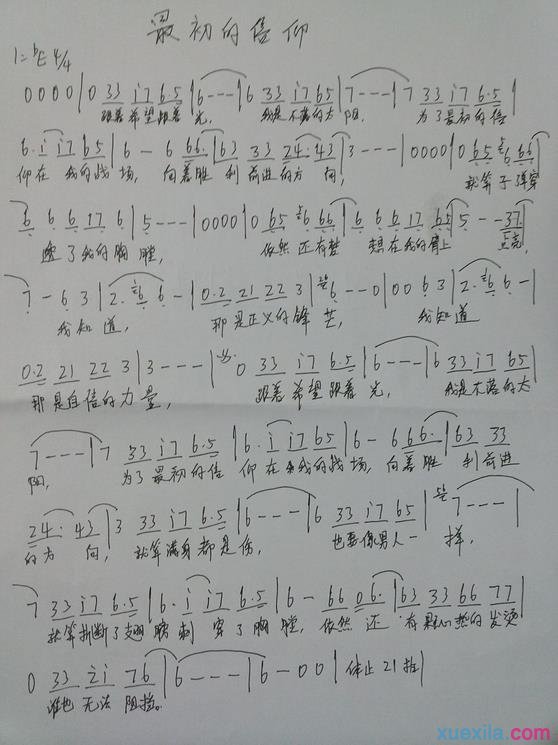 最初的信仰
1=♭E 4/4
0000|0 33 i7 6·5|6---|6 33 i7 65|7---|7 33 i7 6·5|
跟着希望跟着光, 我是不落的太阳, 为了最初的信
6·i i7 65|6-6 66·|63 33 24·43|3---|0000|0 65 6 66|
仰在我的战场, 向着胜利前进的方向, 就算子弹穿
6 6 6 17 6|5---|0000|0 65 6 66|6 6 6 17 65|5--37|
透了我的胸膛, 依然还有梦想在我的肩上
7-63|2·6 6-|0·2 21 22 3|6--0|0063|2·6 6-|
我知道, 那是正义的锋芒, 我知道
0·2 21 22 3|3---|0 33 i7 6·5|6---|6 33 i7 65|
那是自信的力量, 跟着希望跟着光, 我是不落的太
7---|7 33 i7 6·5|6·i i7 65|6-666·|63 33
阳, 为了最初的信仰在我的战场, 向着胜利前进
24·43|3 33 i7 6·5|6---|6 33 i7 65|7---|
的方向, 就算满身都是伤, 也要像男人一样,
7 33 i7 6·5|6·i i7 6·5|6-66 06·|63 33 66 77|
就算折断了翅膀刺穿了胸膛, 依然还有果心热的发烫
0 33 2i 76|6---|6-00|休止21拍|
谁也无法阻挡。
xuexila.com